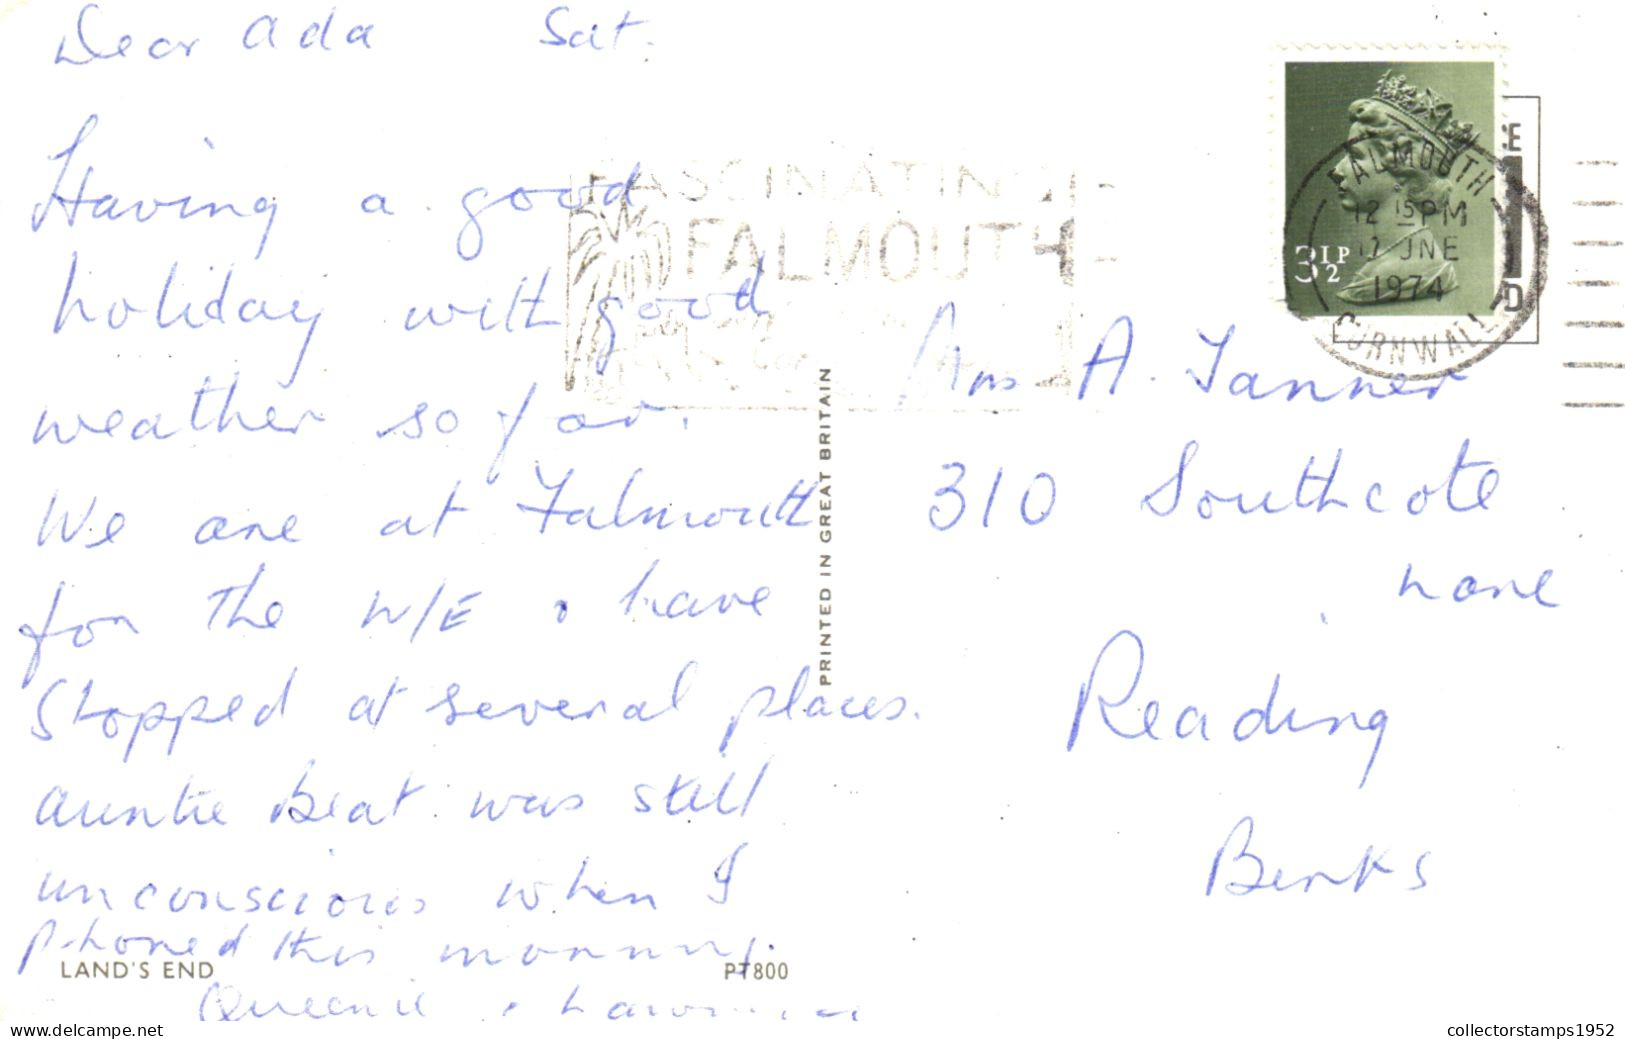 Dear Ada Sat.
Having a good
holiday with good
weather so far.
We are at Falmouth
for the W/E & have
stopped at several places.
Auntie Beat was still
unconscious when I
phoned this morning.
Queenie &
LAND'S END
PT800
PRINTED IN GREAT BRITAIN
FASCINATING
FALMOUTH
3½P
FALMOUTH
12 15 PM
JNE
1974
CORNWALL
Mrs A. Tanner
310 Southcote
Lane
Reading
Berks
collectorstamps1952